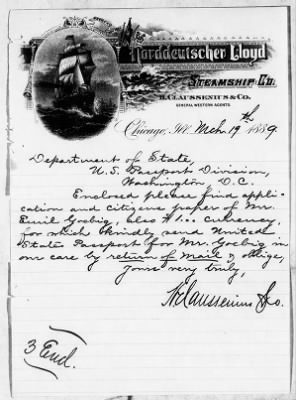 Norddeutscher Lloyd
Steamship Co.
H. Claussenius & Co.
General Western Agents
Chicago, Ill. Mch. 19th 1889.
Department of State,
U. S. Passport Division,
Washington, D. C.
Enclosed please find appli-
cation and citizens paper of Mr.
Emil Goebig, also $1.. currency,
for which kindly send United
States Passport for Mr. Goebig in
our care by return of mail & oblige,
Yours very truly,
H Claussenius & Co.
3 Encl.